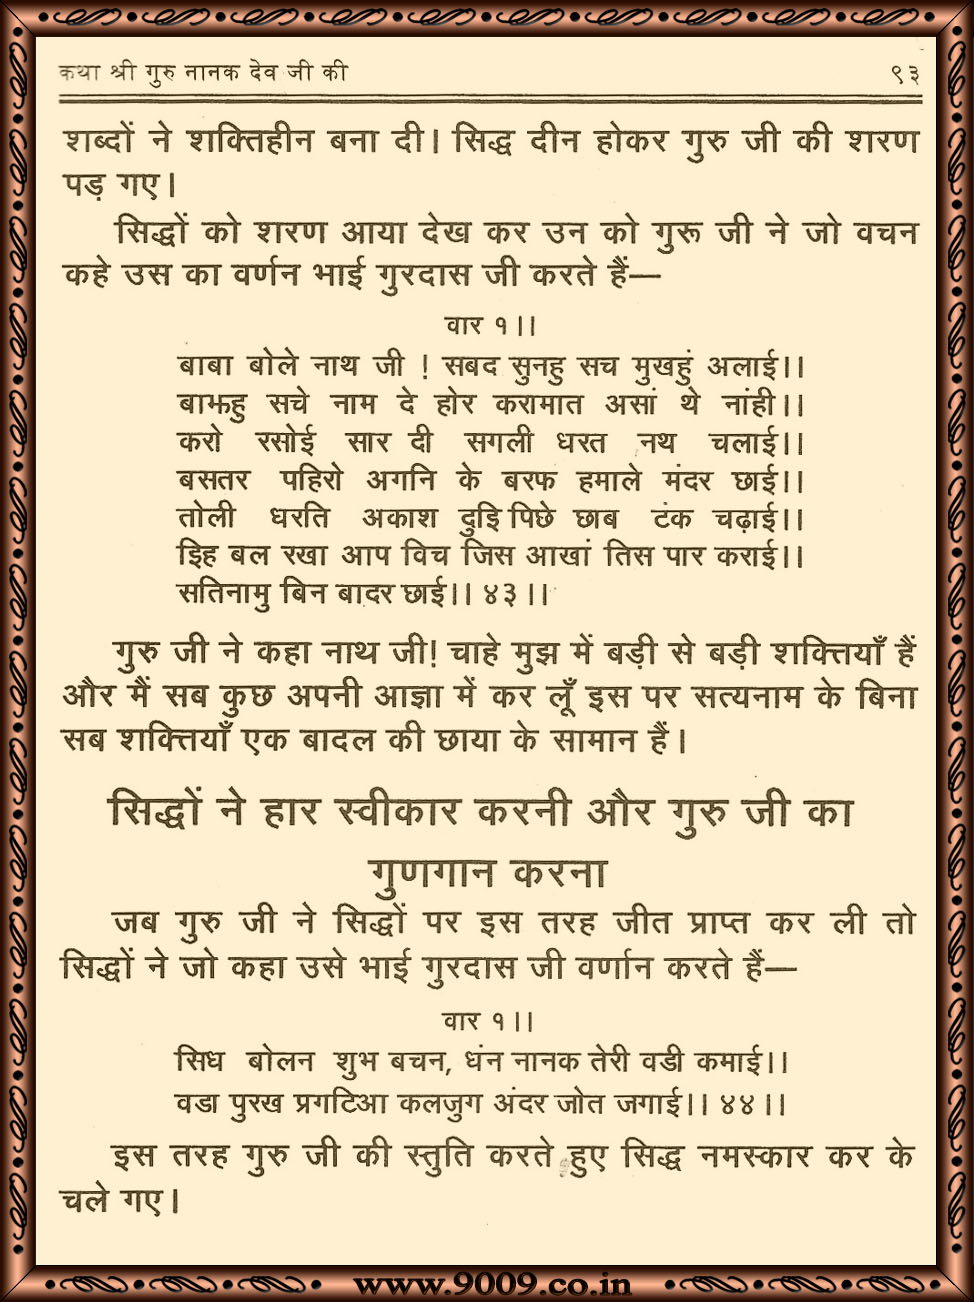 कथा श्री गुरु नानक देव जी की ९३
शब्दों ने शक्तिहीन बना दी। सिद्ध दीन होकर गुरु जी की शरण
पड़ गए।
सिद्धों को शरण आया देख कर उन को गुरू जी ने जो वचन
कहे उस का वर्णन भाई गुरदास जी करते हैं—
वार १।।
बाबा बोले नाथ जी ! सबद सुनहु सच मुखहुं अलाई।।
बाझहु सचे नाम दे होर करामात असां थे नांही।।
करो रसोई सार दी सगली धरत नथ चलाई।।
बसतर पहिरो अगनि के बरफ हमाले मंदर छाई।।
तोली धरति अकाश दुइि पिछे छाब टंक चढ़ाई।।
इिह बल रखा आप विच जिस आखां तिस पार कराई।।
सतिनामु बिन बादर छाई।। ४३।।
गुरु जी ने कहा नाथ जी! चाहे मुझ में बड़ी से बड़ी शक्तियाँ हैं
और मैं सब कुछ अपनी आज्ञा में कर लूँ इस पर सत्यनाम के बिना
सब शक्तियाँ एक बादल की छाया के सामान हैं।
सिद्धों ने हार स्वीकार करनी और गुरु जी का
गुणगान करना
जब गुरु जी ने सिद्धों पर इस तरह जीत प्राप्त कर ली तो
सिद्धों ने जो कहा उसे भाई गुरदास जी वर्णान करते हैं—
वार १।।
सिध बोलन शुभ बचन, धंन नानक तेरी वडी कमाई।।
वडा पुरख प्रगटिआ कलजुग अंदर जोत जगाई।। ४४।।
इस तरह गुरु जी की स्तुति करते हुए सिद्ध नमस्कार कर के
चले गए।
www.9009.co.in